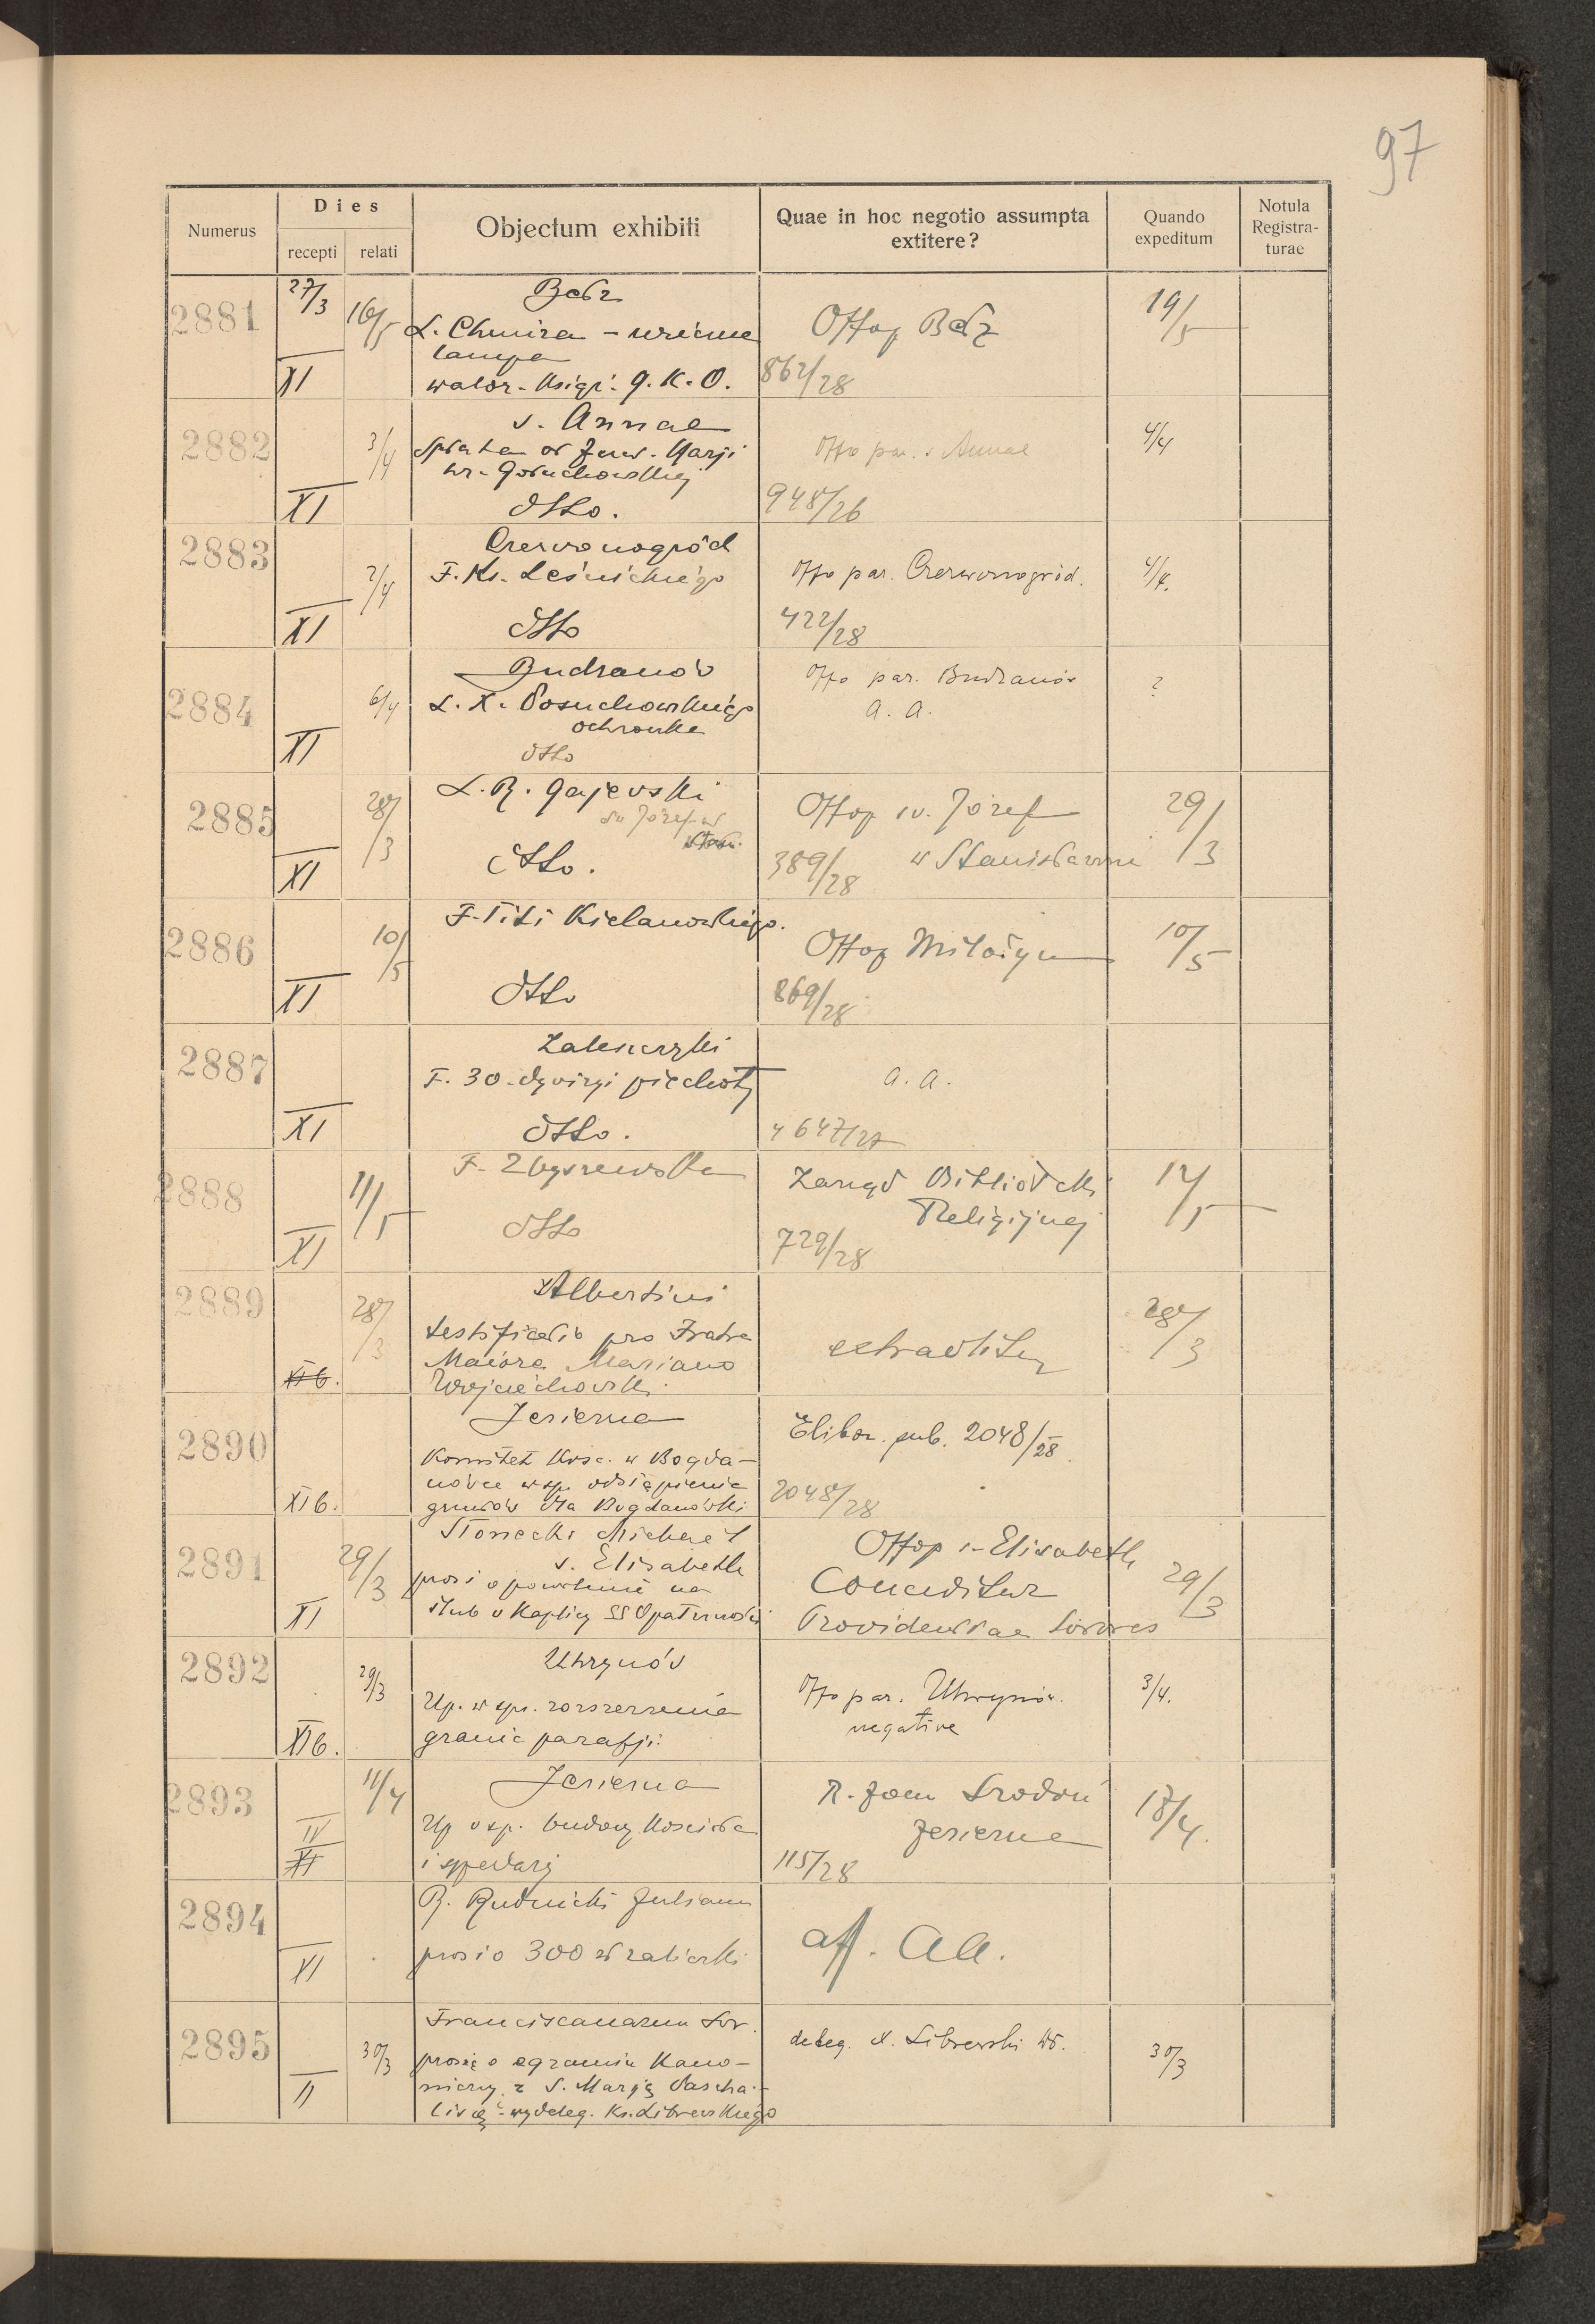 97
Numerus
Dies
recepti
relati
Objectum exhibiti
Quae in hoc negotio assumpta
extitere?
Quando
expeditum
Notula
Registra-
turae
2881
27/3
16/5
XI
Bełz
L. Chmira - wieczne
lampa
walor. Książ. G.K.O.
Offop Bełz
862/28
19/5
2882
3/4
XI
s. Annae
Marji
hr. Gołuchowskiej
dtto.
Offo par. s Annae
948/26
4/4
2883
2/4
XI
Czerwonogród
F. Ks. Leśnickiego
dtto
Offo par. Czerwonogród.
422/28
4/4.
2884
6/4
XI
Budzanów
L. X. Bosuchowskiego
ochronka
dtto
Offo par. Budzanów
a. a.
?
2885
28/3
XI
L. R. Gajewski
św Józef w
dtto.
Offop św. Józef
w Stanisławowie
389/28
29/3
2886
10/5
XI
F. Titi Kielanowskiego.
dtto
Offop Miłożyn
869/28
10/5
2887
XI
Zaleszczyki
F. 30 dywizji piechoty
dtto.
a. a.
4647/27
2888
11/5
XI
F. Zbyszewska
dtto
Zarząd Biblioteki
Religijnej
729/28
12/5
2889
28/3
XIb.
Albertini
testificatio pro Fratre
Maiore Mariano
Wojciechowski
extraditur
28/3
2890
XIb.
Jezierna
Komitet Kośc. w Bogda-
nówce w sp. odstąpienia
gruntów dla Bogdanówki
Elibor. sub. 2048/28.
2048/28
2891
29/3
XI
Słonecki Michał
s. Elisabeth
prosi o pozwolenie na
ślub w Kaplicy SS Opatrzności
Offop s. Elisabeth
Conceditur
Providentiae Sorores
29/3
2892
29/3
XIb.
Uhrynów
Up. w spr. rozszerzenia
granic parafji.
Offo par. Uhrynów.
negative
3/4.
2893
11/4
IV
XI
Jezierna
Up w sp. budowy Kościoła
i sprzedaży
R. Joan Srodoń
Jezierna
115/28
18/4.
2894
XI
R. Rudnicki Juljan
prosi o 300 zł zaliczki
aff. aa.
2895
30/3
II
Franciscanarum Sor.
prosię o egzamin Kano-
niczny z S. Marję Pascha-
lisię - wydeleg. Ks. Librewskiego
deleg. X. Librewski Wł.
30/3